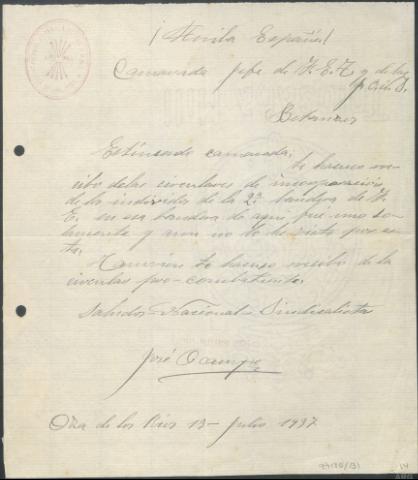 ¡Arriba España!
Camarada jefe de F. E. T. y de las
J. O. N. S.
Betanzos
Estimado camarada:
te hacemos re-
cibo de las circulares de incorporación
de los individuos de la 2ª bandera de F.
E. en esa bandera de aqui fue uno so-
lamente y aun no lo he visto por es-
ta.
Tambien te hacemos recibo de la
circular pro-combatiente.
Saludos Nacional-Sindicalista
José Ocampo
Oza de los Rios 13 - Julio 1937
14